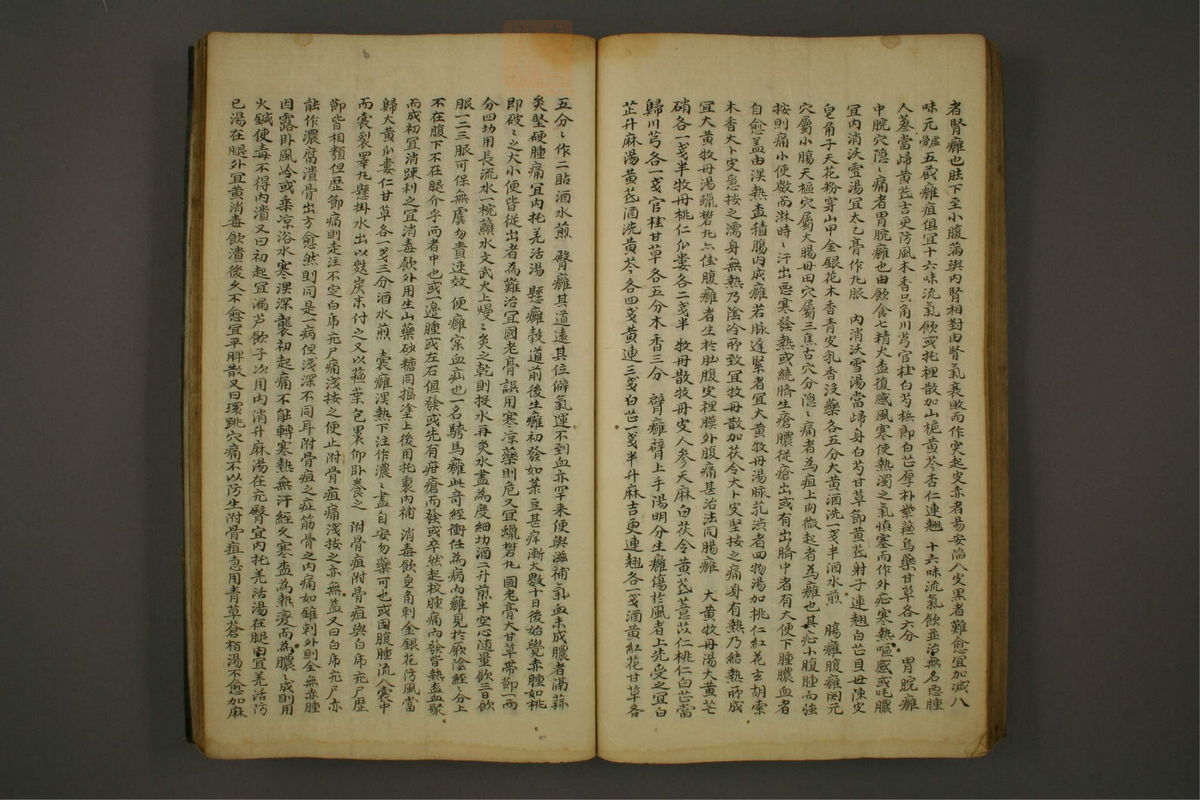 者腎癰也肚下至小腹滿與內腎相對由腎氣衰敗而作突起皮赤者易安陷入皮黑者難愈宜加減八
味元 五臟癰疽俱宜十六味流氣飮或托裡散加山梔黃芩杏仁連翹 十六味流氣飮並治無名惡腫
人蔘當歸黃芪吉更防風木香只角川芎官桂白芍梹郎白芷厚朴紫蘓烏藥甘草各六分 胃脘癰
中脘穴隱〻痛者胃脘癰也由飮食七精火盍復感風寒使熱濁之氣塡塞而作外症寒熱嘔咳或吐膿
宜內消沃雪湯宜太乙膏作丸服 內消沃雪湯當歸身白芍甘草節黃芪射子連翹白芷貝母陳皮
皂角子天花粉穿山甲金銀花木香靑皮乳香沒藥各五分大黃酒洗一戔半酒水煎 腸癰腹癰関元
穴屬小腸天樞穴屬大腸丹田穴屬三焦右穴分隱〻痛者爲疽上肉微起者爲癰也其症小腹腫而强
按則痛小便數而淋時〻汗出惡寒發熱或繞臍生瘡膿從瘡出或有出臍中者有大便下腫膿血者
自愈盖由湿熱盍積腸內成癰若脉遲緊者宜大黃牧丹湯脉芤澁者四物湯加桃仁紅花玄胡索
木香大卜皮惡按之濡身無熱乃陰冷所致宜牧丹散加茯令大卜皮堅按之痛身有熱乃結熱所成
宜大黃牧丹湯蠟礬丸 腹癰者生於肚腹皮裡膜外腹痛甚治法同腸癰 大黃牧丹湯大黃芒
硝各一戔半牧丹桃仁瓜蔞各二戔半 牧丹散牧丹皮人參天麻白茯令黃芪薏苡仁桃仁白芷當
歸川芎各一戔官桂甘草各五分木香三分 臂癰臂上手陽明分生癰傷於風者上先受之宜白
芷升麻湯黃芪酒洗黃芩各四戔黃連三戔白芷一戔半升麻吉更連翹各一戔酒黃紅花甘草各
五分〻作二貼酒水煎 臀癰其道遠其位僻氣運不到血亦罕来便與滋補氣血未成膿者
灸堅硬腫痛宜內托羌活湯 懸癰穀道前後生癰初發如葉豆甚痒漸大數十日後始覺赤腫如桃
卽破〻之大小便皆從出者爲難治宜國老膏誤用寒涼藥則危又宜蠟礬丸 國老膏大甘草帶節一兩
分四切用長流水一椀蘸水文武火上熳〻炙之乾則捉水再炙水盡爲度細切酒二升煎半空心隨量飮三日飮
服一二三服可保無虞勿責速效 便癰宲血疝也一名騎馬癰此奇經衝任爲病而癰見於厥陰經〻分上
不在腹下不在腿介乎兩者中也或一邊腫或左右俱發或先有疳瘡而發或卒然起核腫痛而發皆熱盍血聚
而成初宜消踈利之宜消毒飮外用生山藥砂糖同搗塗上後用托裏內補 消毒飮皂角刺金銀花防風當
歸大黃瓜蔞仁甘草各一戔三分酒水煎 囊癰湿熱下注作濃〻盡自安勿藥可也或因腹腫流入囊中
而囊裂睾丸懸掛水出以麩炭末付之又以蘓葉包裹仰卧養之 附骨疽附骨疽與白虎尢尸歷
節皆相類但歷節痛則走注不空白虎尢尸痛淺按之便止附骨疽痛淺按之亦無益又曰白虎尢尸亦
能作濃腐潰骨出方愈然則同是一病但淺深不同耳附骨疽之症筋骨之內痛如錐刺外則全無赤腫
因露卧風冷或乘凉浴水寒湿深襲初起痛不能轉寒熱無汗經久寒盍爲熱変而爲膿〻成則用
火鍼使毒不得內潰又曰初起宜漏芦飮子次用內消升麻湯在尻臀宜內托羌活湯在腿內宜羌活防
已湯在腿外宜黃消毒飮潰後久不愈宜平胖散又曰環跳穴痛不以防生附骨疽急用靑草蒼栢湯不愈加麻